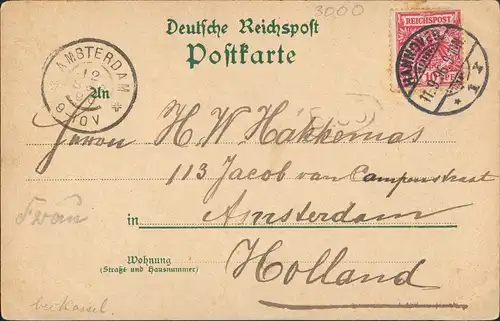 3000
Deutsche Reichspost
Postkarte
REICHSPOST
HANNOVER
* 1 z
AMSTERDAM
An
Herrn H. W. Hakkemas
113 Jacob van Campenstraat
in Amsterdam
Wohnung
(Straße und Hausnummer)
Holland
bei Kassel.